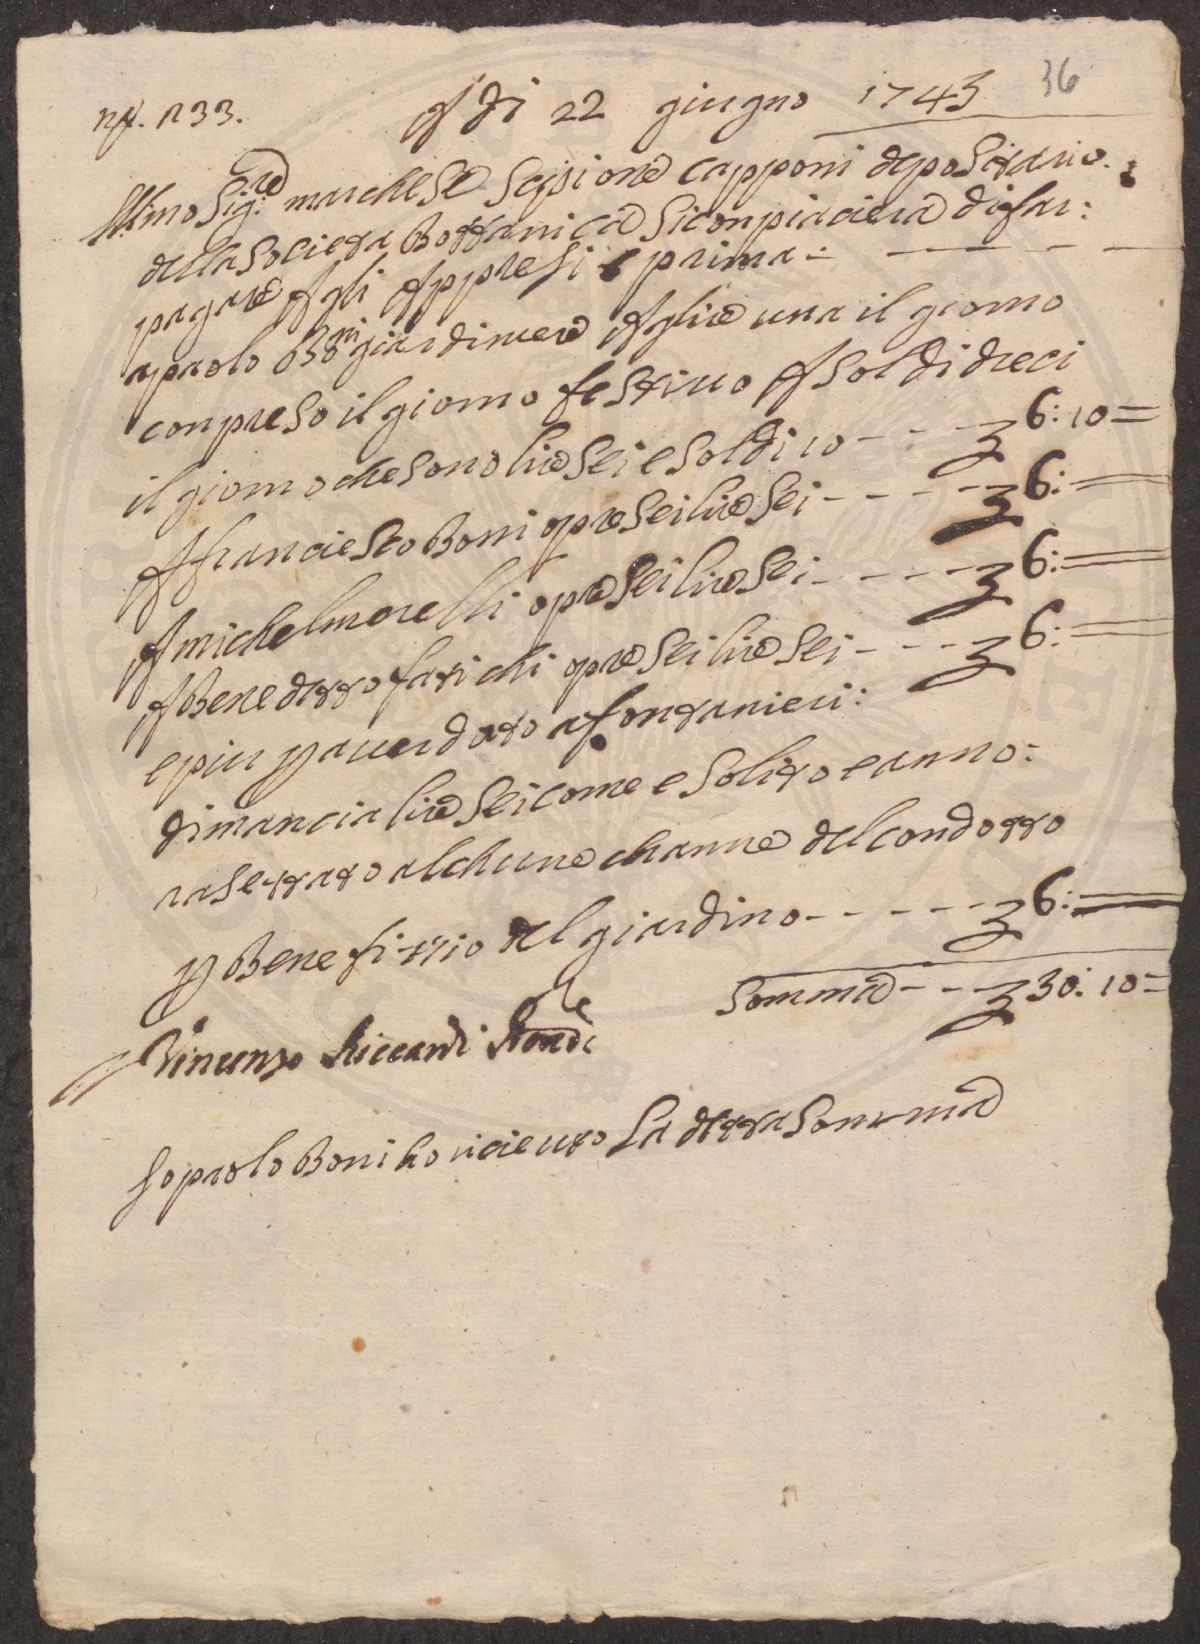 36
n.o 133. A dì 22 giugno 1743
Illmo Sig:re marchese Scipione capponi depositario
della Societa Bottanica si conpiaciera di far:
pagare A gli Appresi e prima:
a paolo Boni giardinere A lire una il giorno
conpreso il giorno festivo A soldi dieci
il giorno che sono lire sei e soldi 10 - - - - 6: 10 =
A franciesco Boni opre sei lire sei - - - - - 6: =
A michel morelli opre sei lire sei - - - - - 6: =
A Benedetto fatichi opre sei lire sei - - - - 6: =
e piu p aver dato a fontanieri:
di mancia lire sei come e solito e anno:
rasettato alchune channe del condotto
p Benefizzio del giardino - - - - - - 6: =
Somma - - - 30: 10 =
Vincenzo Riccardi
Io paolo Boni ho riceuto La detta somma